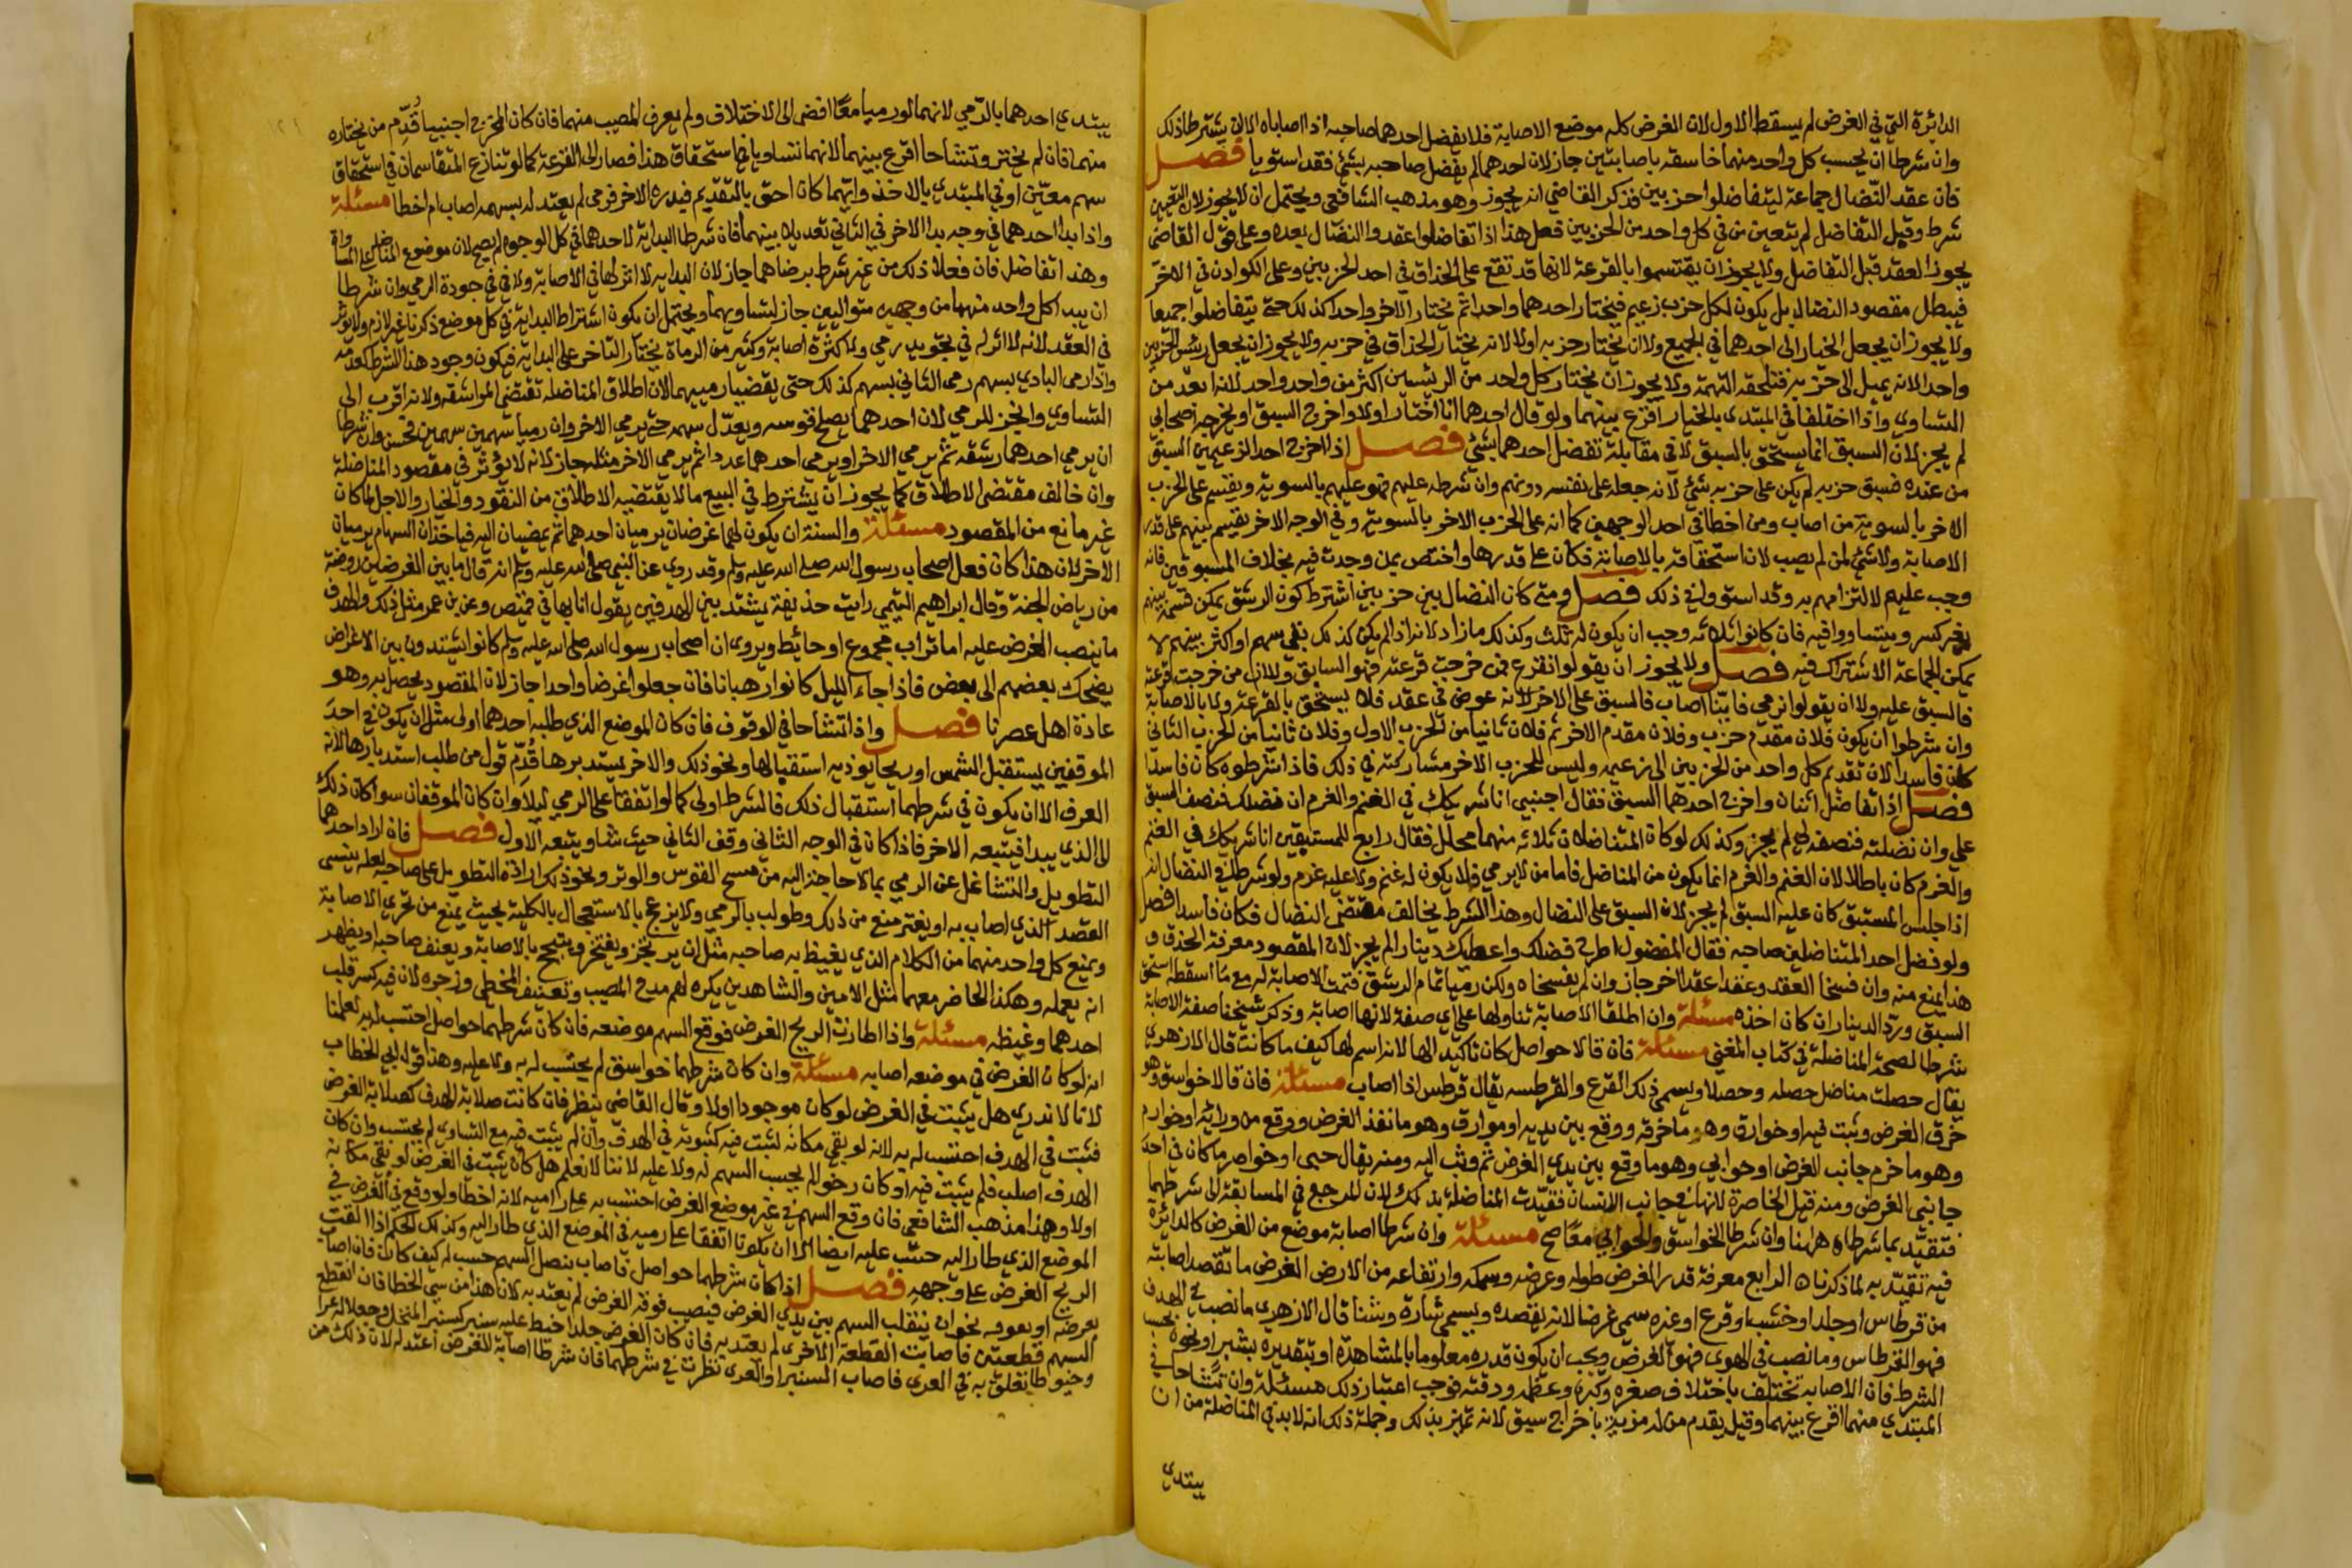 الدائرة التي في الغرض لم يسقط الاول لان الغرض كله موضع الاصابة فلا يفضل احدهما صاحبه اذا اصاباه الا ان يشترطا ذلك
وان شرطا ان يحسب كل واحد منهما خاسقه باصابتين جاز لان احدهما لم يفضل صاحبه بشئ فقد استويا فصل
فان عقد النضال جماعة ليتفاضلوا حزبين فذكر القاضي انه يجوز وهو مذهب الشافعي ويحتمل ان لا يجوز لان التعيين
شرط وقبل التفاضل لم يتعين من في كل واحد من الحزبين فعلى هذا اذا تفاضلوا عقدوا النضال بعده وعلى قول القاضي
يجوز العقد قبل التفاضل ولا يجوز ان يقتسموا بالقرعة لانها قد تقع على الحذاق في احد الحزبين وعلى الكوادن في الاخر
فيبطل مقصود النضال بل يكون لكل حزب زعيم فيختار احدهما واحدا ثم يختار الاخر واحدا كذلك حتى يتفاضلوا جميعا
ولا يجوز ان يجعل الخيار الى احدهما في الجميع ولا ان يختار حزبه اولا لانه يختار الحذاق في حزبه ولا يجوز ان يجعل رئيس الحزبين
واحدا لانه يميل الى حزبه فتلحقه التهمة ولا يجوز ان يختار كل واحد من الرئيسين اكثر من واحد واحد لانه ابعد من
التساوي واذا اختلفا في المبتدي بالخيار اقرع بينهما ولو قال احدهما انا اختار اولا واخرج السبق او يخرجه اصحابي
لم يجز لان السبق انما يستحق بالسبق لا في مقابلة تفضل احدهما بشئ فصل اذا اخرج احد الزعيمين السبق
من عنده فسبق حزبه لم يكن على حزبه شئ لانه جعله على نفسه دونهم وان شرطه عليهم فهو عليهم بالسوية ويقسم على الحزب
الاخر بالسوية من اصاب ومن اخطا في احد الوجهين كما انه على الحزب الاخر بالسوية وفي الوجه الاخر يقسم بينهم على قدر
الاصابة ولا شئ لمن لم يصب لان استحقاقه بالاصابة فكان على قدرها واختص بمن وجدت فيه بخلاف المسبوقين فانه
وجب عليهم لالتزامهم به وقد استووا في ذلك فصل ومتى كان النضال بين حزبين اشترط كون الرشق يمكن قسمته بينهم
بغير كسر ويتساووا فيه فان كانوا ثلاثه وجب ان يكون له ثلث وكذلك ما زاد لانه اذا لم يكن كذلك بقي سهم او اكثر بينهم لا
يمكن الجماعة الاشتراك فيه فصل ولا يجوز ان يقولوا نقرع فمن خرجت قرعته فهو السابق ولا ان من خرجت قرعته
فالسبق عليه ولا ان يقولوا نرمي فاينا اصاب فالسبق على الاخر لانه عوض في عقد فلا يستحق بالقرعة ولا بالاصابة
وان شرطوا ان يكون فلان مقدم حزب وفلان مقدم الاخر ثم فلان ثانيا من الحزب الاول وفلان ثانيا من الحزب الثاني
كان فاسدا لان تقديم كل واحد من الحزبين الى زعيمه وليس للحزب الاخر مشاركته في ذلك فاذا شرطوه كان فاسدا
فصل اذا تفاضل اثنان واخرج احدهما السبق فقال اجنبي انا شريكك في الغنم والغرم ان فضلك فنصف السبق
علي وان نضلته فنصفه لي لم يجز وكذلك لو كان المتناضلان ثلاثه منهما محلل فقال رابع للمستبقين انا شريكك في الغنم
والغرم كان باطلا لان الغنم والغرم انما يكون من المناضل فاما من لا يرمي فلا يكون له غنم ولا عليه غرم ولو شرط في النضال انه
اذا جلس المستبق كان عليه السبق لم يجز لان السبق على النضال وهذا الشرط يخالف مقتضى النضال فكان فاسدا فصل
ولو فضل احد المتناضلين صاحبه فقال المفضول اطرح فضلك واعطيك دينارا لم يجز لان المقصود معرفة الحذق و
هذا يمنع منه وان فسخا العقد وعقدا عقدا اخر جاز وان لم يفسخاه ولكن رميا تمام الرشق فتمت الاصابة له مع ما اسقطه استحق
السبق ورد الدينار ان كان اخذه مسئلة وان اطلقا الاصابة تناولها على اي صفة لانها اصابة وذكر شيخنا صفة الاصابة
شرطا لصحة المناضلة في كتاب المغني مسئلة فان قالا حواصل كان تاكيدا لها لانه اسم لها كيف ما كانت قال الازهري
يقال حصلت مناضل حصله وحصلا ويسمى ذلك القرع والقرطسه يقال قرطس اذا اصاب مسئلة فان قالا خواسق وهو
خرق الغرض وثبت فيه او خوارق وهو ما خرقه ووقع بين يديه او موارق وهو ما نفذ الغرض ووقع من ورائه او خوارم
وهو ما خرم جانب الغرض او حوابي وهو ما وقع بين يدي الغرض ثم وثب اليه ومنه يقال حبى او خواصر ما كان في احد
جانبي الغرض ومنه قيل الخاصرة لانها في جانب الانسان فقيدت المناضلة بذلك لان المرجع في المسابقة الى شرطهما
فتقيد بما شرطاه هاهنا وان شرطا الخواسق والحوابي معا صح مسئلة وان شرطا اصابة موضع من الغرض كالدائرة
فيه تقيد به لما ذكرناه الرابع معرفة قدر الغرض طوله وعرضه وسمكه وارتفاعه من الارض الغرض ما تقصد اصابته
من قرطاس او جلد او خشب او قرع او غيره سمي غرضا لانه يقصد ويسمى شارة وشنا قال الازهري ما نصب في الهدف
فهو القرطاس وما نصب في الهوى فهو الغرض ويجب ان يكون قدره معلوما بالمشاهدة او بتقديره بشبر او نحوه بحسب
الشرط فان الاصابة تختلف باختلاف صغره وكبره وغلظه ودقته فوجب اعتبار ذلك مسئلة وان تشاحا في
المبتدي منهما اقرع بينهما وقيل يقدم من له مزية باخراج سبق لانه تميز بذلك وجملة ذلك انه لا بد في المناضلة من ان
يبتدي
يبتدي احدهما بالرمي لانهما لو رميا معا افضى الى الاختلاف ولم يعرف المصيب منهما فان كان المخرج اجنبيا قدم من يختاره
منهما فان لم يختر وتشاحا اقرع بينهما لانهما تساويا في استحقاق هذا فصارا الى القرعة كما لو تنازع المتقاسمان في استحقاق
سهم معين او في المبتدي بالاخذ وايهما كان احق بالتقديم فبدره الاخر فرمى لم يعتد له بسهمه اصاب ام اخطا مسئلة
واذا بدا احدهما في وجه بدا الاخر في الثاني تعديلا بينهما فان شرطا البداية لاحدهما في كل الوجوه لم يصح لان موضوع المناضلة على المساواة
وهذا تفاضل فان فعلا ذلك من غير شرط برضاهما جاز لان البداية لا اثر لها في الاصابة ولا في جودة الرمي وان شرطا
ان يبدا كل واحد منهما من وجهين متواليين جاز لتساويهما ويحتمل ان يكون اشتراط البداية في كل موضع ذكرنا غير لازم ولا يؤثر
في العقد لانه لا اثر له في تجويد رمي ولا كثرة اصابة وكثير من الرماة يختار التاخر على البداية فيكون وجود هذا الشرط كعدمه
واذا رمى البادي بسهم رمى الثاني بسهم كذلك حتى يقضيا رميهما لان اطلاق المناضلة تقتضي المراسلة ولانه اقرب الى
التساوي وانجز للرمي لان احدهما يصلح قوسه ويعدل سهمه حتى يرمي الاخر وان رميا سهمين سهمين فحسن وان شرطا
ان يرمي احدهما رشقه ثم يرمي الاخر او يرمي احدهما عددا ثم يرمي الاخر مثله جاز لانه لا يؤثر في مقصود المناضلة
وان خالف مقتضى الاطلاق كما يجوز ان يشترط في البيع ما لا يقتضيه الاطلاق من النقود والخيار والاجل لما كان
غير مانع من المقصود مسئلة والسنة ان يكون لهما غرضان يرميان احدهما ثم يمضيان اليه فياخذان السهام يرميان
الاخر لان هذا كان فعل اصحاب رسول الله صلى الله عليه وسلم وقد روي عن النبي صلى الله عليه وسلم انه قال ما بين الغرضين روضة
من رياض الجنة وقال ابراهيم التيمي رايت حذيفة يشتد بين الهدفين يقول انا بها في قميص وعن بن عمر مثل ذلك والهدف
ما ينصب الغرض عليه اما تراب مجموع او حائط ويروى ان اصحاب رسول الله صلى الله عليه وسلم كانوا يشتدون بين الاغراض
يضحك بعضهم الى بعض فاذا جاء الليل كانوا رهبانا فان جعلوا غرضا واحدا جاز لان المقصود يحصل به وهو
عادة اهل عصرنا فصل واذا تشاحا في الوقوف فان كان الموضع الذي طلبه احدهما اولى مثل ان يكون في احد
الموقفين يستقبل الشمس او ريحا يوذيه استقبالها ونحو ذلك والاخر يستدبرها قدم قول من طلب استدبارها لانه
العرف الا ان يكون في شرطهما استقبال ذلك فالشرط اولى كما لو اتفقا على الرمي ليلا وان كان الموقفان سوا كان ذلك
الى الذي يبدا فيتبعه الاخر فاذا كان في الوجه الثاني وقف الثاني حيث شا ويتبعه الاول فصل فان اراد احدهما
التطويل والتشاغل عن الرمي بما لا حاجة اليه من مسح القوس والوتر ونحو ذلك ارادة التطويل على صاحبه لعله ينسى
القصد الذي اصاب به او يفتر منع من ذلك وطولب بالرمي ولا يزعج بالاستعجال بالكلية بحيث يمنع من تحري الاصابة
ويمنع كل واحد منهما من الكلام الذي يغيظ به صاحبه مثل ان يرتجز ويفتخر ويتبجح بالاصابة ويعنف صاحبه او يظهر
انه يعلمه وهكذا الحاضر معهما مثل الامين والشاهدين يكره لهم مدح المصيب وتعنيف المخطي وزجره لان فيه كسر قلب
احدهما وغيظه مسئلة واذا اطارت الريح الغرض فوقع السهم موضعه فان كان شرطهما حواصل احتسب له به لعلمنا
انه لو كان الغرض في موضعه اصابه مسئلة وان كان شرطهما خواسق لم يحتسب له به ولا عليه وهذا قول ابي الخطاب
لانا لا ندري هل يثبت في الغرض لو كان موجودا اولا وقال القاضي ننظر فان كانت صلابة الهدف كصلابة الغرض
فثبت في الهدف احتسب له به لانه لو بقي مكانه لثبت فيه كثبوته في الهدف وان لم يثبت فيه مع التساوي لم يحتسب وان كان
الهدف اصلب فلم يثبت فيه او كان رخوا لم يحسب السهم له ولا عليه لاننا لا نعلم هل كان يثبت في الغرض لو بقي مكانه
اولا وهذا مذهب الشافعي فان وقع السهم في غير موضع الغرض احتسب به على راميه لانه اخطا ولو وقع في الغرض في
الموضع الذي طار اليه حسب عليه ايضا الا ان يكونا اتفقا على رميه في الموضع الذي طار اليه وكذلك الحكم اذا القت
الريح الغرض على وجهه فصل اذا كان شرطهما حواصل فاصاب بنصل السهم حسب له كيف كان فان اصاب
بعرضه او بفوقه نحو ان ينقلب السهم بين يدي الغرض فيصيب فوقه الغرض لم يعتد به لان هذا من سي الخطا فان انقطع
السهم قطعتين فاصابت القطعة الاخرى لم يعتد به فان كان الغرض جلدا خيط عليه سنبر كسنبر المنخل وجعلا له عرا
وخيوطا تعلق به في العرى فاصاب السنبر او العرى نظرت في شرطهما فان شرطا اصابة الغرض اعتد له لان ذلك من